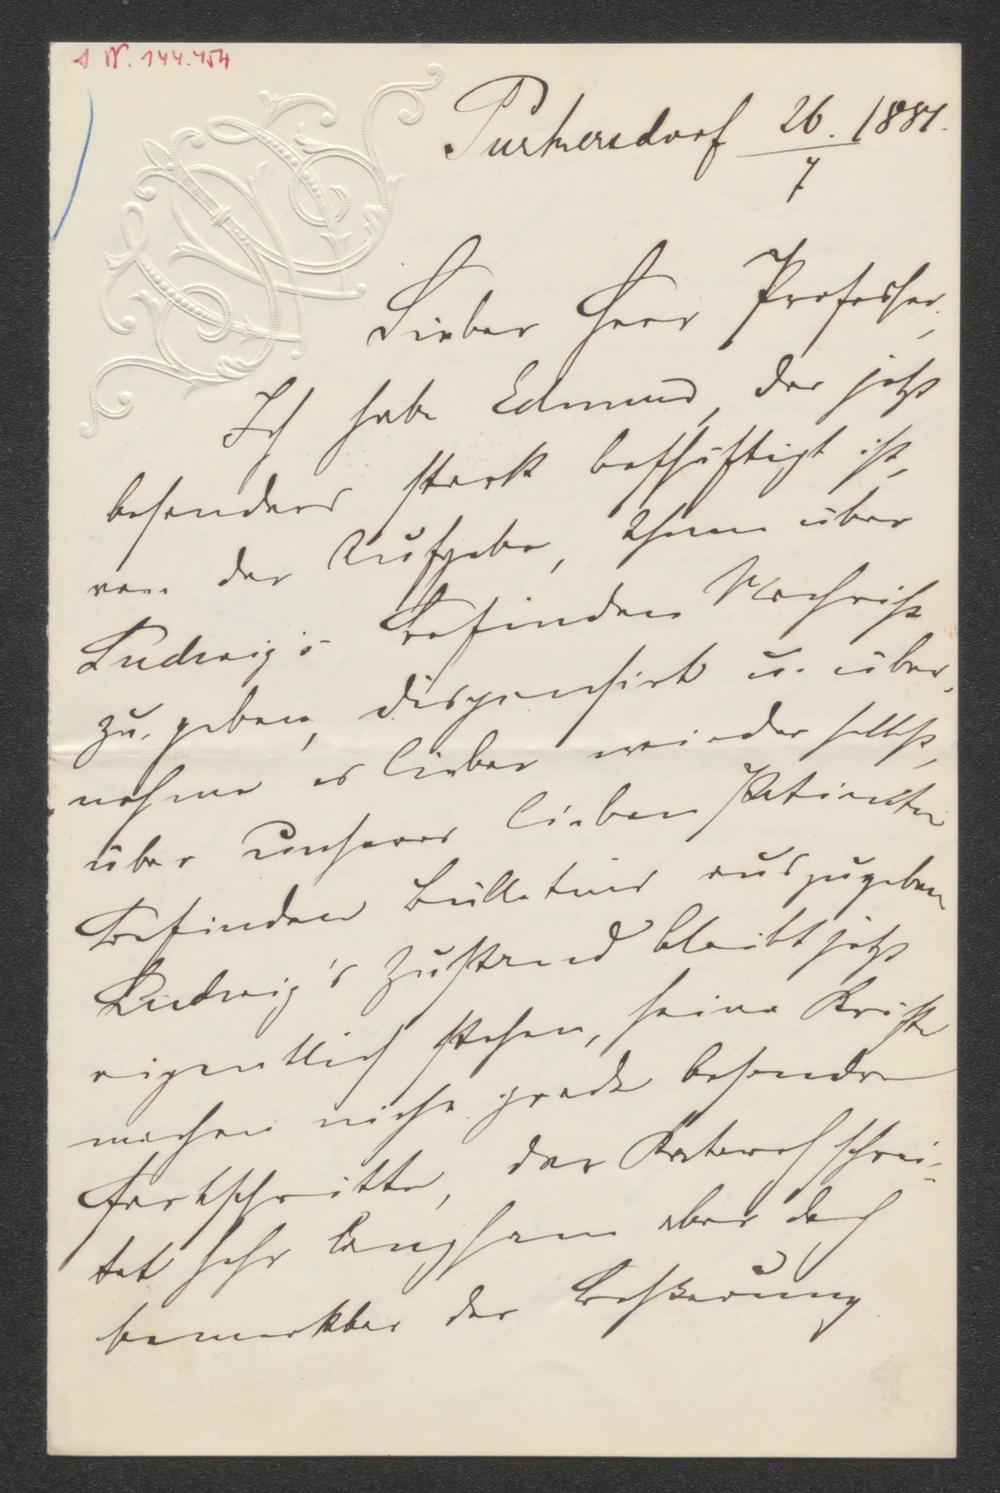 I N. 144.454
Purkersdorf 26./7 1881.
Lieber Herr Professor,
Ich habe Edmund, der jetzt
besonders stark beschäftigt ist,
von der Aufgabe, Ihnen über
Ludwig's Befinden Nachricht
zu geben, dispensirt u. über-
nehme es lieber wieder selbst,
über unseres lieben Patienten
Befinden Bulletins auszugeben
Ludwig's Zustand bleibt jetzt
eigentlich stehen, seine Kräfte
machen nicht grade besondre
Fortschritte, der Katarrh schrei-
tet sehr langsam aber doch
bemerkbar der Besserung